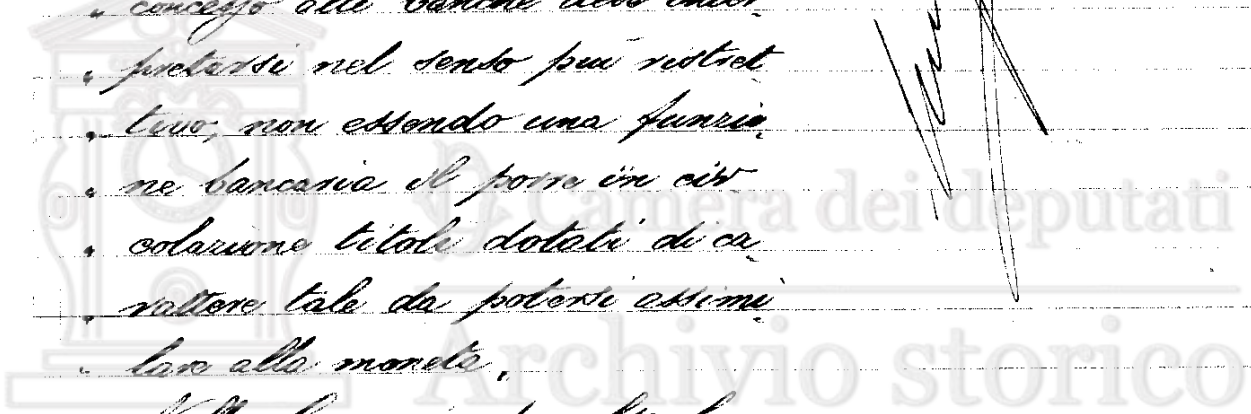 „ concesso alle banche deve inter
„ pretarsi nel senso più restret
„ tivo, non essendo una funzio„
„ ne bancaria il porre in cir
„ colazione titoli dotati di ca„
„ rattere tale da potersi assimi„
„ lare alla moneta„
Camera dei deputati
Archivio storico